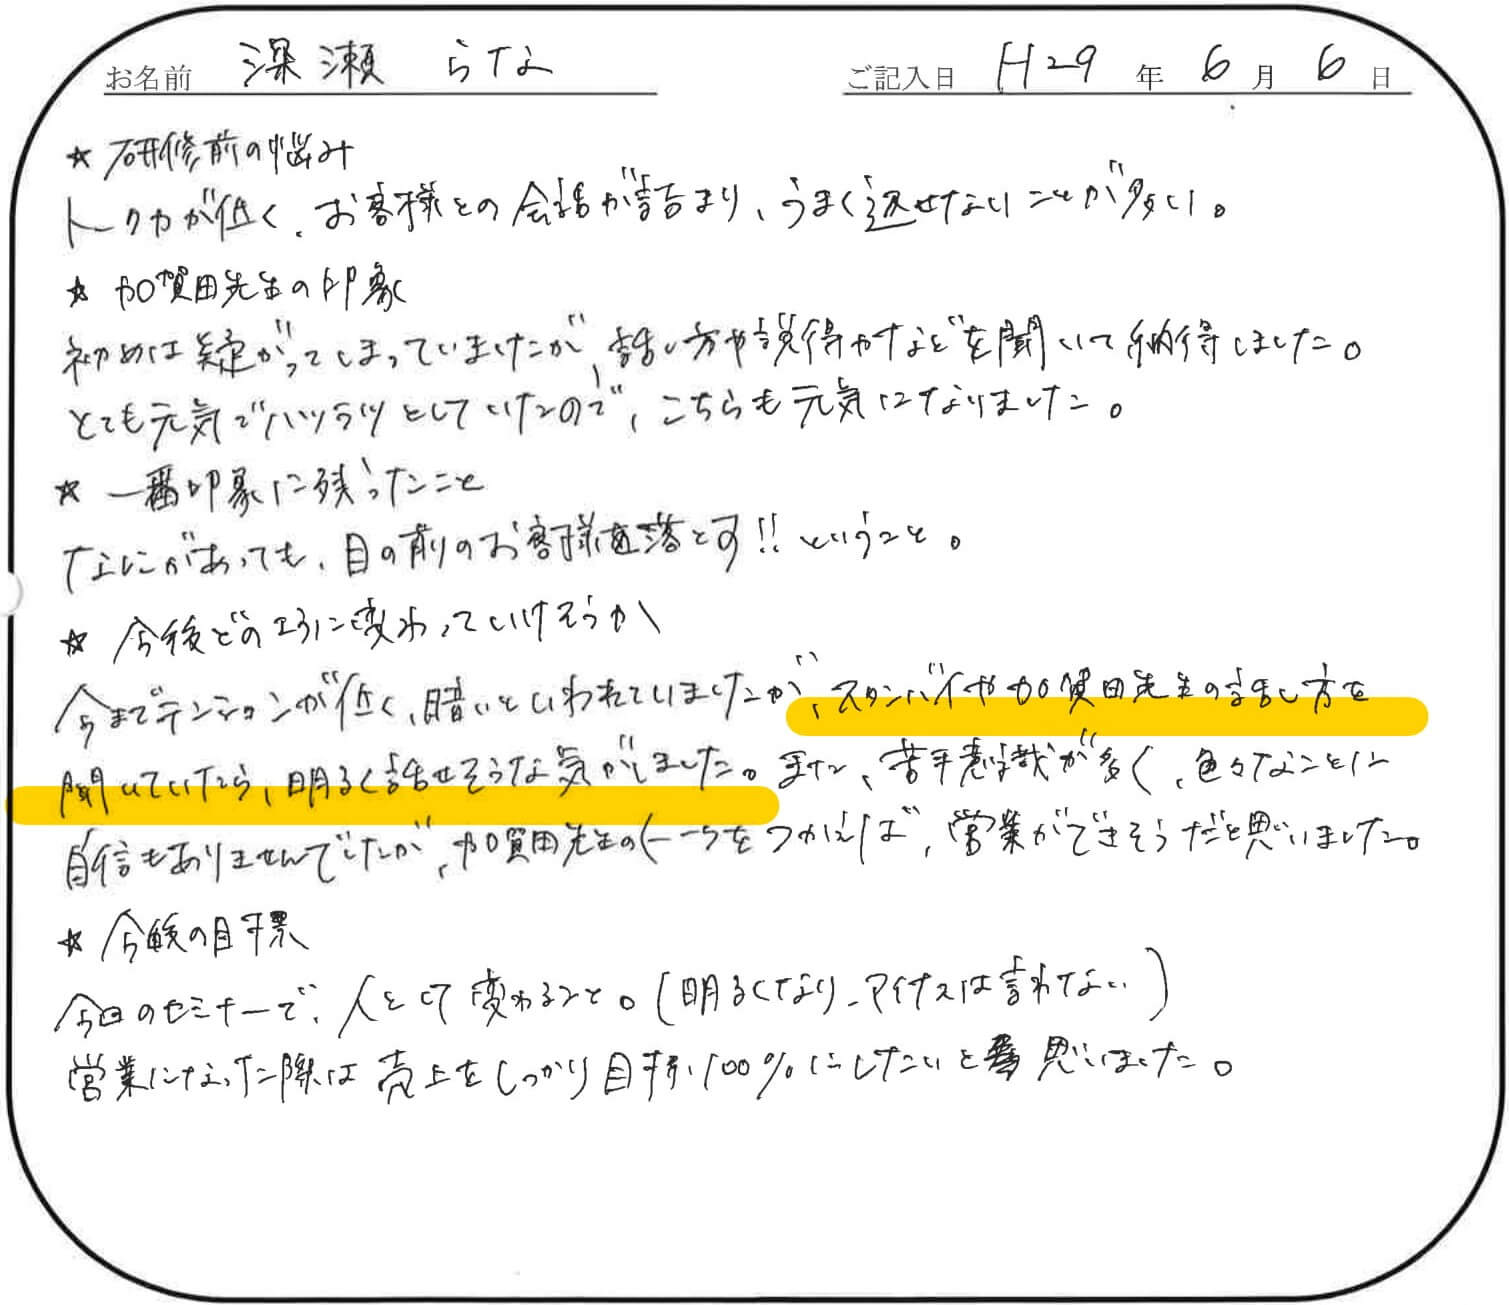 お名前 深瀬 らな ご記入日 H29年 6月 6日
☆ 研修前の悩み
トーク力が低く、お客様との会話が詰まり、うまく返せないことが多い。
☆ 加賀田先生の印象
初めは疑がってしまっていましたが、話し方や説得力などを聞いて納得しました。
とても元気でハツラツとしていたので、こちらも元気になりました。
☆ 一番印象に残ったこと
なにがあっても、目の前のお客様を落とす!! ということ。
☆ 今後どのように変わっていけそうか
今までテンションが低く、暗いといわれていましたが、スタンバイや加賀田先生の話し方を
聞いていたら、明るく話せそうな気がしました。また、苦手意識が多く、色々なことに
自信もありませんでしたが、加賀田先生のトークをつかえば、営業ができそうだと思いました。
☆ 今後の目標
今日のセミナーで、人として変わること。(明るくなり、マイナスは言わない)
営業になった際は売上をしっかり目標100%にしたいと思いました。